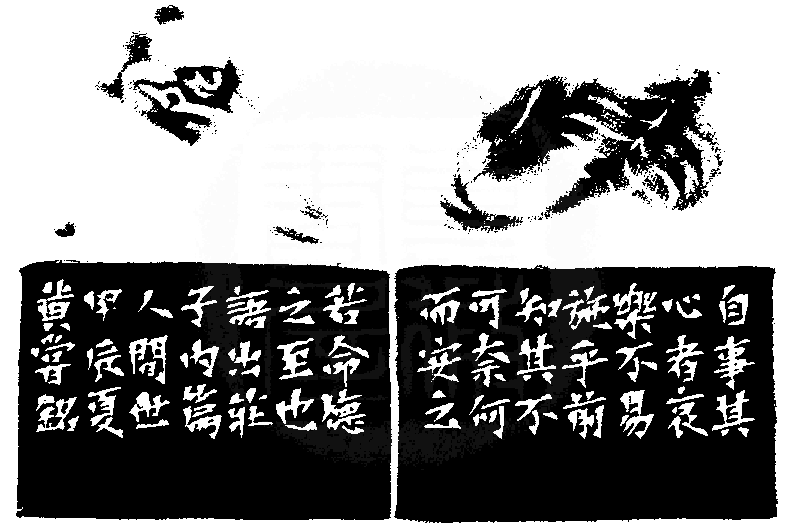 自事其
心者哀
樂不易
施乎前
知其不
可奈何
而安之
若命德
之至也
語出莊
子內篇
人間世
甲辰夏
冀嘗銘